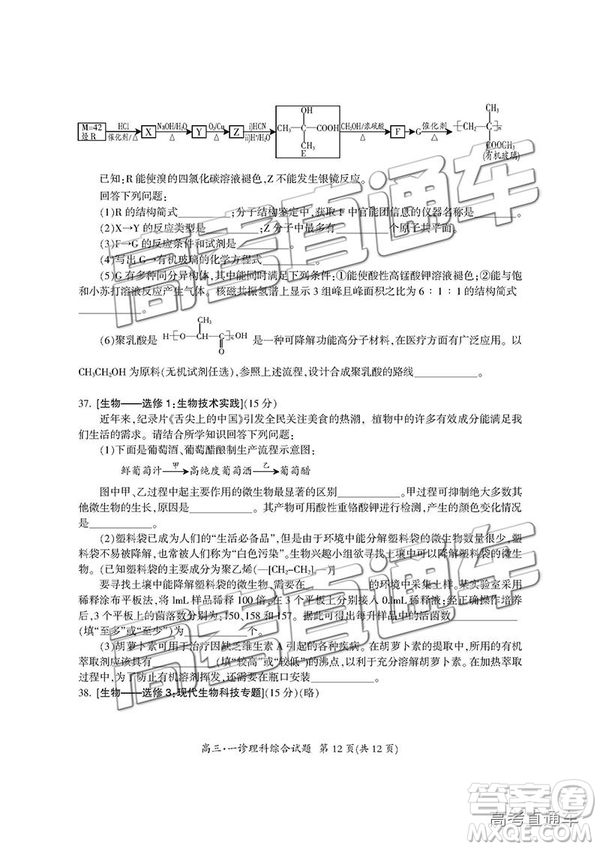 M=42 烃 R HCl 催化剂/△ X NaOH/H₂O △ Y O₂/Cu △ Z ①HCN ②H⁺/H₂O OH CH₃—C—COOH CH₃ E CH₃OH/浓硫酸 △ F G 催化剂 CH₃ ─[CH₂—C]ₙ─ COOCH₃ (有机玻璃)
已知:R 能使溴的四氯化碳溶液褪色,Z 不能发生银镜反应。
回答下列问题:
(1)R 的结构简式________;分子结构鉴定中,获取 F 中官能团信息的仪器名称是________。
(2)X→Y 的反应类型是________;Z 分子中最多有________个原子共平面。
(3)F→G 的反应条件和试剂是________。
(4)写出 G→有机玻璃的化学方程式________。
(5)G 有多种同分异构体,其中能同时满足下列条件:①能使酸性高锰酸钾溶液褪色;②能与饱
和小苏打溶液反应产生气体。核磁共振氢谱上显示 3 组峰且峰面积之比为 6∶1∶1 的结构简式
________。
(6)聚乳酸是 H─[O—CH(CH₃)—C(=O)]ₙ─OH 是一种可降解功能高分子材料,在医疗方面有广泛应用。以
CH₃CH₂OH 为原料(无机试剂任选),参照上述设计,设计合成聚乳酸的路线________。
37. [生物——选修 1:生物技术实践](15 分)
近年来,纪录片《舌尖上的中国》引发全民关注美食的热潮,植物中的许多有效成分能满足我
们生活的需求。请结合所学知识回答下列问题:
(1)下面是葡萄酒、葡萄醋酿制生产流程示意图:
鲜葡萄汁 甲→ 高纯度葡萄酒 乙→ 葡萄醋
图中甲、乙过程中起主要作用的微生物最显著的区别________。甲过程可抑制绝大多数其他
微生物的生长,原因是________。其产物可用酸性重铬酸钾进行检测,产生的颜色变化情况是
________。
(2)塑料袋已成为人们的“生活必备品”,但是由于环境中能分解塑料袋的微生物数量很少,塑
料袋不易被降解,也被称为“白色污染”。生物兴趣小组欲寻找土壤中可以降解塑料袋的微生物。
(已知塑料袋的主要成分为聚乙烯(—[CH₂-CH₂]—)
要寻找土壤中能降解塑料袋的微生物,需要在________的环境中采集土样。某实验室采用
稀释涂布平板法,将 1mL 样品稀释 100倍,在 3 个平板上分别接入 0.1mL稀释液;经正确操作培养
后,3 个平板上的菌落数分别为;150、158 和 157。据此可得出每升样品中的活菌数________
(填“至多”或“至少”)为________个。
(3)胡萝卜素可用于治疗因缺乏维生素 A 引起的各种疾病。从胡萝卜中提取胡萝卜素所用的有机
萃取剂应该具有________(填“较高”或“较低”)的沸点,以利于充分溶解胡萝卜素。在加热萃取过程
中,为了防止有机溶剂挥发,还需要在瓶口安装________。
38. [生物——选修 3:现代生物科技专题](15 分)(略)
高三·一诊理科综合试题 第 12 页(共 12 页)
高考直通车
答案圈
高考直通车
MXQE.COM